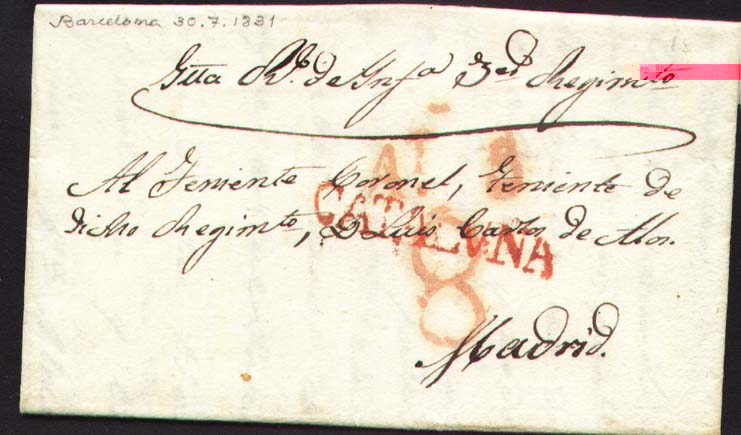 Barcelona 30.7.1831
Gtta Rl. de Ynfa 3er Regimto
Al Teniente Coronel, Teniente de
dicho Regimto, D Luis Carlos de
CATALUÑA
8
Madrid.